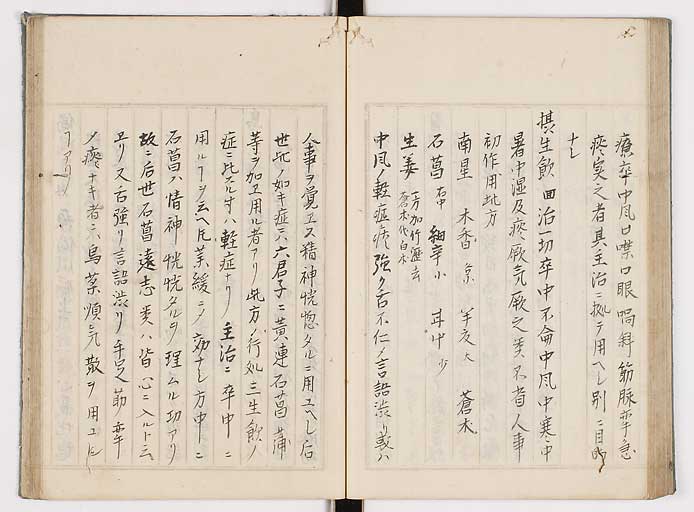 癱卒中風口噤口眼喎斜筋脉挛急
痰実之者其主治ニ拠テ用ヘシ別ニ目的
ナシ
星香飲 回治一切卒中不侖中風中寒中
暑中湿及痰厥気厥之类不省人事
初作用此方
南星 木香 京 半夏大 蒼木
石菖中 細辛小 甘中 少
生姜 一方加竹瀝去蒼木代白木
中風ノ軽症痰強ク舌不仁ノ言語渋リ或ハ
人事ヲ覚エス精神恍惚タルニ用ユヘシ后
世此ノ如キ症ニハ六君子ニ黄連石菖蒲
等ヲ加ヱ用ル者アリ此方ノ行処三生飲ノ
症ニ比スルトキハ軽症ナリ主治ニ卒中ニ
用ルヿヲ云ヘ𪜈薬緩ニメ効ナシ方中ニ
石菖ハ情神恍惚タルヲ理ムル功アリ
故ニ后世石菖遠志类ハ皆心ニ入ルト云
ヱリ又舌強リ言語渋リ手足筋挛
ノ痰ナキ者ニハ烏薬順気散ヲ用ユヘシ
ヿアリ